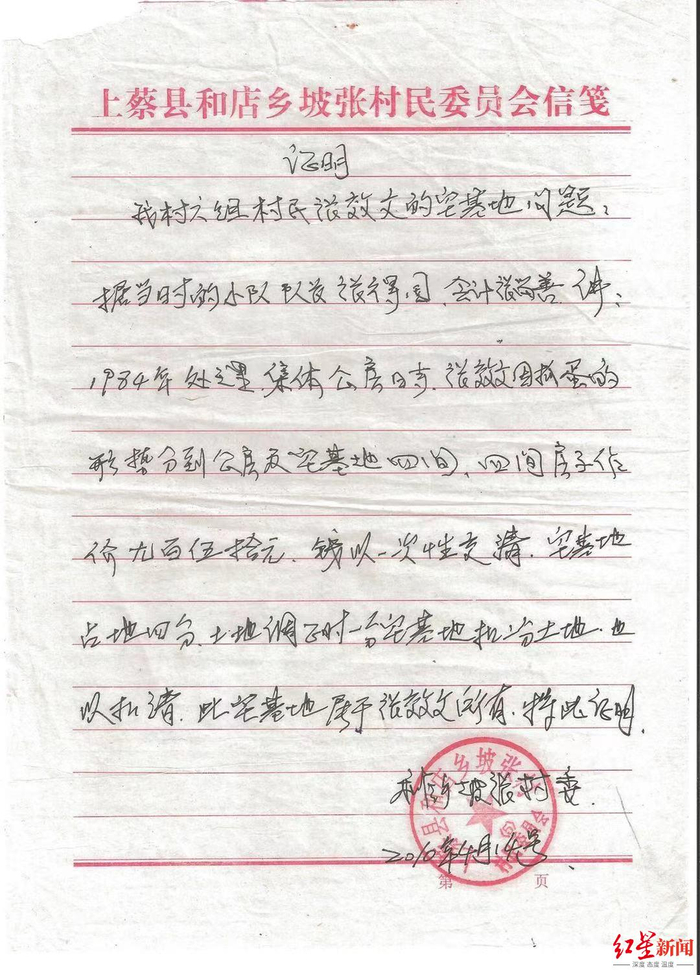 上蔡县和店乡坡张村民委员会信笺
证明
我村六组村民张效文的宅基地问题:
据当时的小队队长张得 会计张 善讲:
1984年处理集体公房时,张效文因抓蛋的
形势分到公房及宅基地四间,四间房子作
价九百伍拾元,钱以一次性交清,宅基地
占地四分,土地调正时一分宅基地扣 分土地,也
以扣清,此宅基地属于张效文所有,特此证明.
和店乡坡张村委.
2010年4月14号
第 页
红星新闻
深度 态度 温度